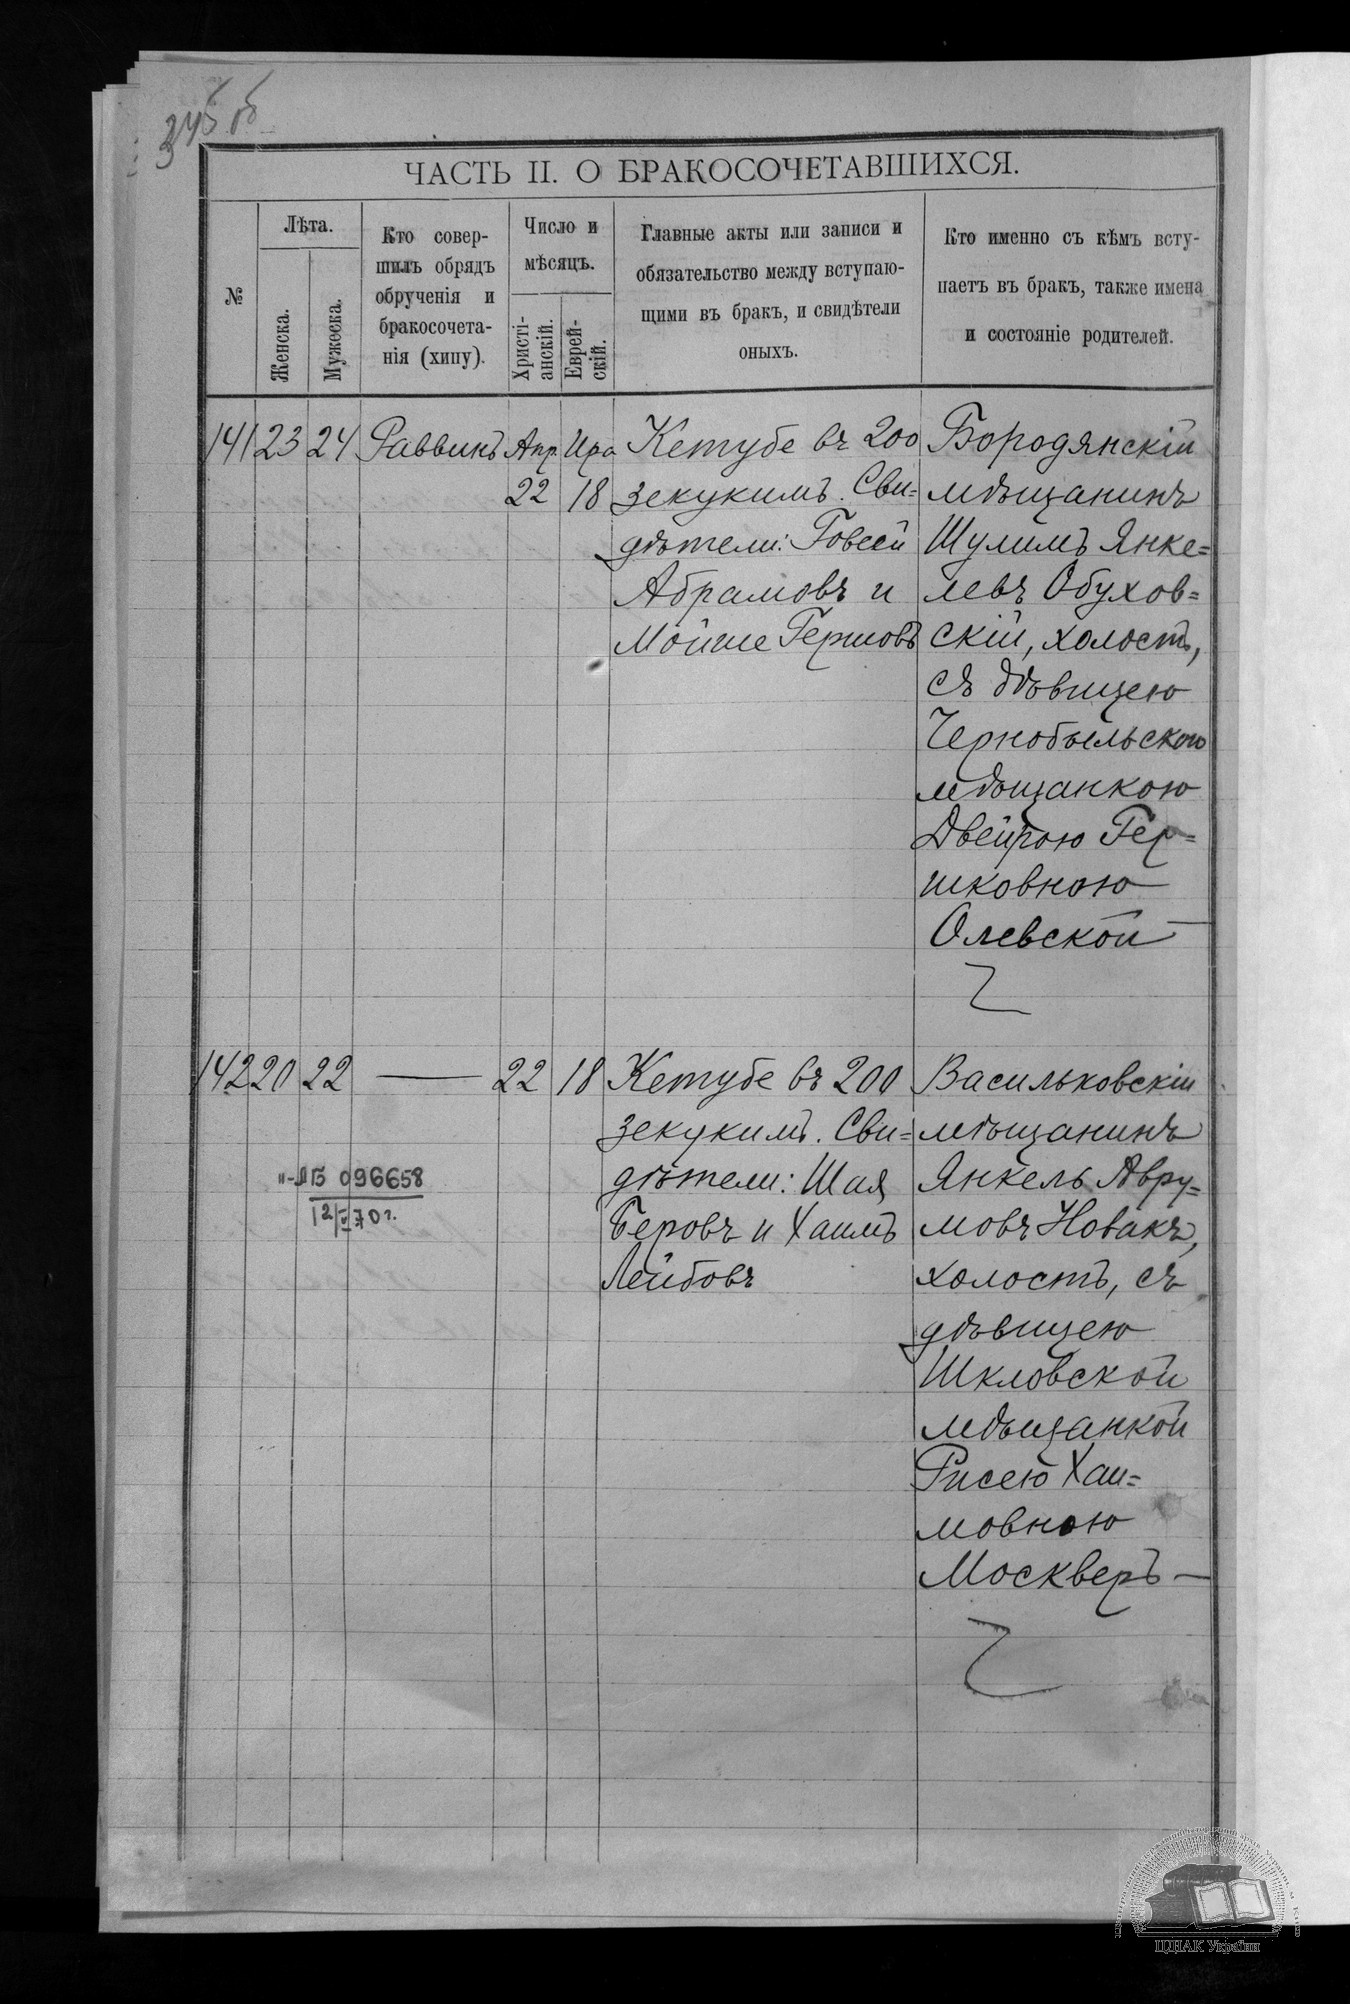 345 об
ЧАСТЬ II. О БРАКОСОЧЕТАВШИХСЯ.
№
Лѣта.
Женска.
Мужеска.
Кто совер-
шилъ обрядъ
обрученія и
бракосочета-
нія (хипу).
Число и
мѣсяцъ.
Христі-
анскій.
Еврей-
скій.
Главные акты или записи и
обязательство между вступаю-
щими въ бракъ, и свидѣтели
оныхъ.
Кто именно съ кѣмъ всту-
паетъ въ бракъ, также имена
и состояніе родителей.
141 23 24 Раввинъ Апр. Ира
22 18
Кетубе въ 200
зекукимъ. Сви=
дѣтели: Говсей
Абрамовъ и
Мойше Гершовъ
Бородянскій
мѣщанинъ
Шулимъ Янке=
левъ Обухов=
скій, холостъ,
съ дѣвицею
Чернобыльскою
мѣщанкою
Двейрою Гер=
шковною
Олевской
142 20 22 — 22 18
Кетубе въ 200
зекукимъ. Сви=
дѣтели: Шая
Беровъ и Хаимъ
Лейбовъ
Васильковскій
мѣщанинъ
Янкель Авру=
мовъ Новакъ,
холостъ, съ
дѣвицею
Шкловской
мѣщанкой
Рисею Хаи=
мовною
Москверъ —
II-ЛБ 096658
12/V 70 г.
ЦДІАК України